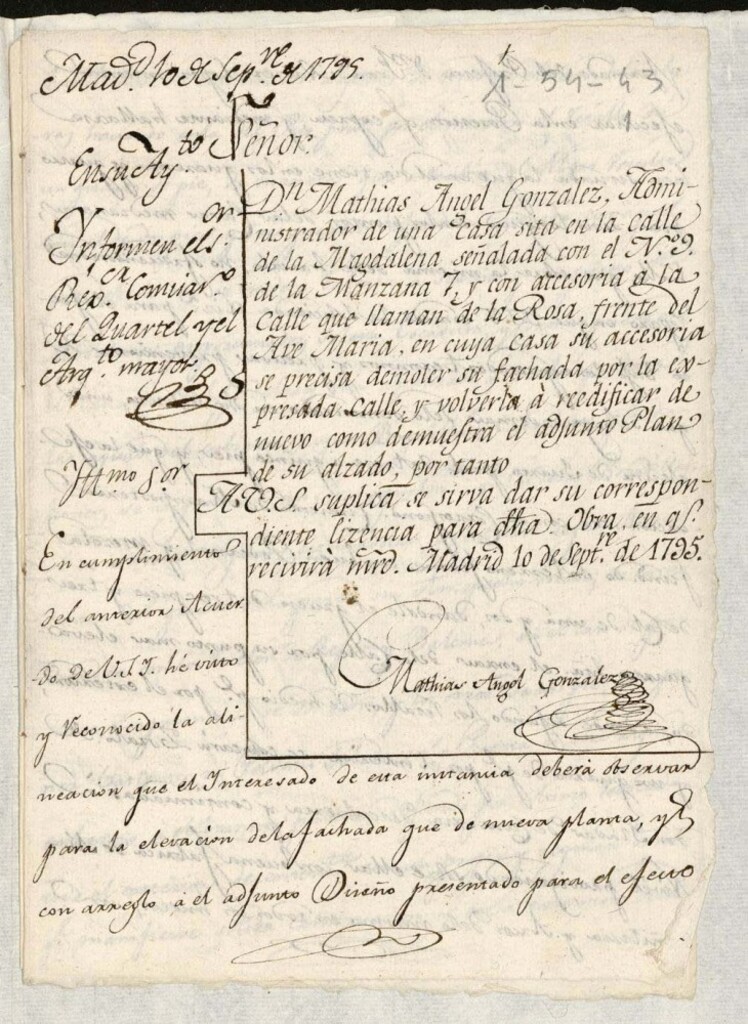 Mad.d 10 de Sep.re de 1795.
1-54-43
1
En su Ay.to
Informen el s.or
Rex.or Comisar.o
del Quartel y el
Arq.to mayor.
Señor.
D.n Mathias Angel Gonzalez, Admi-
nistrador de una Casa sita en la calle
de la Magdalena señalada con el N.o 9.
de la Manzana 7, y con accesoria à la
Calle que llaman de la Rosa, frente del
Ave Maria, en cuya casa su accesoria
se precisa demoler su fachada por la ex-
presada calle, y volverla à reedificar de
nuevo como demuestra el adjunto Plan
de su alzado, por tanto
A V.S. suplica se sirva dar su correspon-
diente lizencia para dha. Obra, en q.e
recivirà mrd. Madrid 10 de Sept.re de 1795.
Mathias Angel Gonzalez
Illmo s.or
En cumplimiento
del anterior Acuer
do de V.S.I. hé visto
y reconocido la ali-
neacion que el Interesado de esta instancia deberá observar
para la elevacion de la fachada que de nueva planta, y
con arreglo á el adjunto Diseño presentado para el efecto